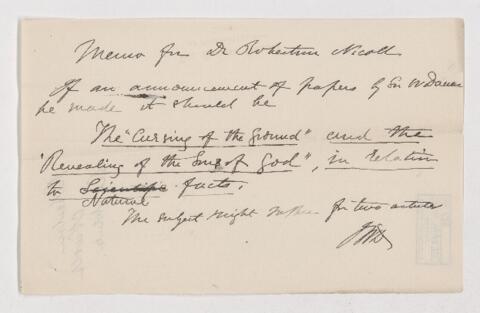 Memo for Dr Robertson Nicoll
If an announcement of papers by Sir W Dawson
be made it should be
The "Cursing of the Ground" and the
"Revealing of the Sons of God", in relation
to Scientific facts.
Natural
The subject might for two articles
JWD